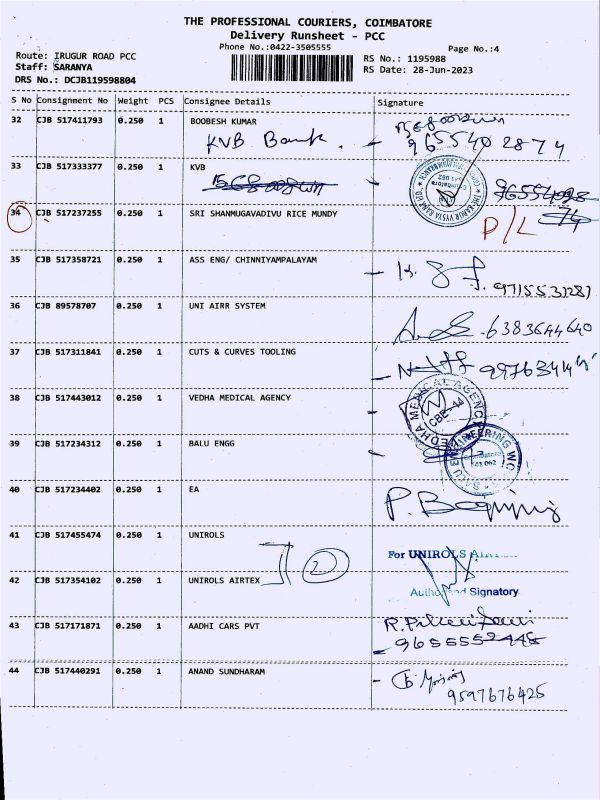 THE PROFESSIONAL COURIERS, COIMBATORE
Delivery Runsheet - PCC
Phone No.:0422-3505555
Page No.:4
Route: IRUGUR ROAD PCC
RS No.: 1195988
Staff: SARANYA
RS Date: 28-Jun-2023
DRS No.: DCJB119598804
S No Consignment No Weight PCS Consignee Details Signature
32 CJB 517411793 0.250 1 BOOBESH KUMAR
KVB Bank. - 9655402874
33 CJB 517333377 0.250 1 KVB
34 CJB 517237255 0.250 1 SRI SHANMUGAVADIVU RICE MUNDY
D/L
35 CJB 517358721 0.250 1 ASS ENG/ CHINNIYAMPALAYAM
9715531281
36 CJB 89578707 0.250 1 UNI AIRR SYSTEM
6383644640
37 CJB 517311841 0.250 1 CUTS & CURVES TOOLING
38 CJB 517443012 0.250 1 VEDHA MEDICAL AGENCY
VEDHA MEDICAL AGENCY
39 CJB 517234312 0.250 1 BALU ENGG
40 CJB 517234402 0.250 1 EA
41 CJB 517455474 0.250 1 UNIROLS
For UNIROLS AIRTEX
2
42 CJB 517354102 0.250 1 UNIROLS AIRTEX
Authorised Signatory
43 CJB 517171871 0.250 1 AADHI CARS PVT
44 CJB 517440291 0.250 1 ANAND SUNDHARAM
9597676425